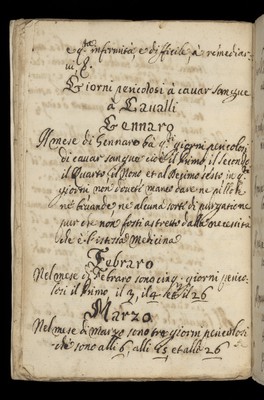 e q.ta infermità, e difficile, à remediar
ui
Giorni pericolosi à cauar sangue
à Caualli
Gennaro
Nel mese di Gennaro ha giorni pericolosi
di cauar sangue cioè il Primo il secondo
il Quarto il Nono et al Decimo sesto in q.ti
giorni non douete mano dare ne pillole
ne beuande ne alcuna sorte di purgatione
pur che non fosti astretto dalla necessità
che è l'istessa Medicina
Febraro
Nel mese di Febraro sono cinq giorni perico
losi il Primo il 3, il 4 il 26
Marzo
Nel mese di Marzo sono tre giorni pericolosi
che sono alli 6, alli 15 et alli 26